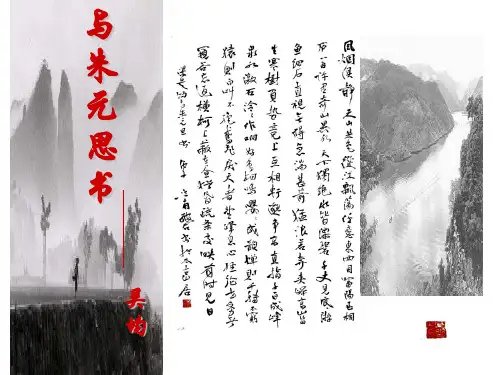 与朱元思书
吴均
風烟俱静天山共色從流飄荡任意東西自富陽至桐
廬一百许里奇山異水天下獨绝水皆缥碧千丈見底游
魚细石直視无碍急湍甚箭猛浪若奔夹岸高山皆
生寒樹負势竞上互相轩邈争高直指千百成峰
泉水激石泠泠作响好鸟相鸣嘤嘤成韻蝉則千转不窮
猿則百叫不绝鸢飛戾天者望峰息心经纶世务者
窺谷忘返横柯上蔽在昼犹昏疏条交映有时見日
吴均与朱元思书